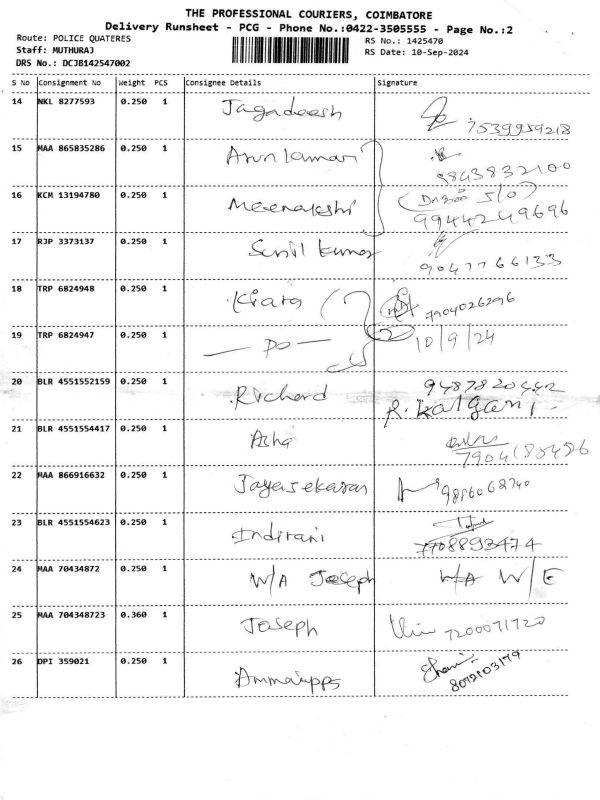 THE PROFESSIONAL COURIERS, COIMBATORE
Delivery Runsheet - PCG - Phone No.:0422-3505555 - Page No.:2
Route: POLICE QUATERES RS No.: 1425470
Staff: MUTHURAJ RS Date: 10-Sep-2024
DRS No.: DCJB142547002
S No Consignment No Weight PCS Consignee Details Signature
14 NKL 8277593 0.250 1 Jagadeesh 7539959218
15 MAA 865835286 0.250 1 Arunkumar 9843832100
16 KCM 13194780 0.250 1 Meenakshi S/O)
9944249696
17 RJP 3373137 0.250 1 Sunil kumar 9047766133
18 TRP 6824948 0.250 1 Kiara 7904026296
19 TRP 6824947 0.250 1 — DO — 2 10/9/24
20 BLR 4551552159 0.250 1 Richard 9487820442
R. Kalyani.
21 BLR 4551554417 0.250 1 Asha
22 MAA 866916632 0.250 1 Jayasekaran 9886068740
23 BLR 4551554623 0.250 1 Indirani 7708893474
24 MAA 70434872 0.250 1 W/A Joseph W/E
25 MAA 704348723 0.360 1 Joseph 7200071720
26 DPI 359021 0.250 1 8072103179